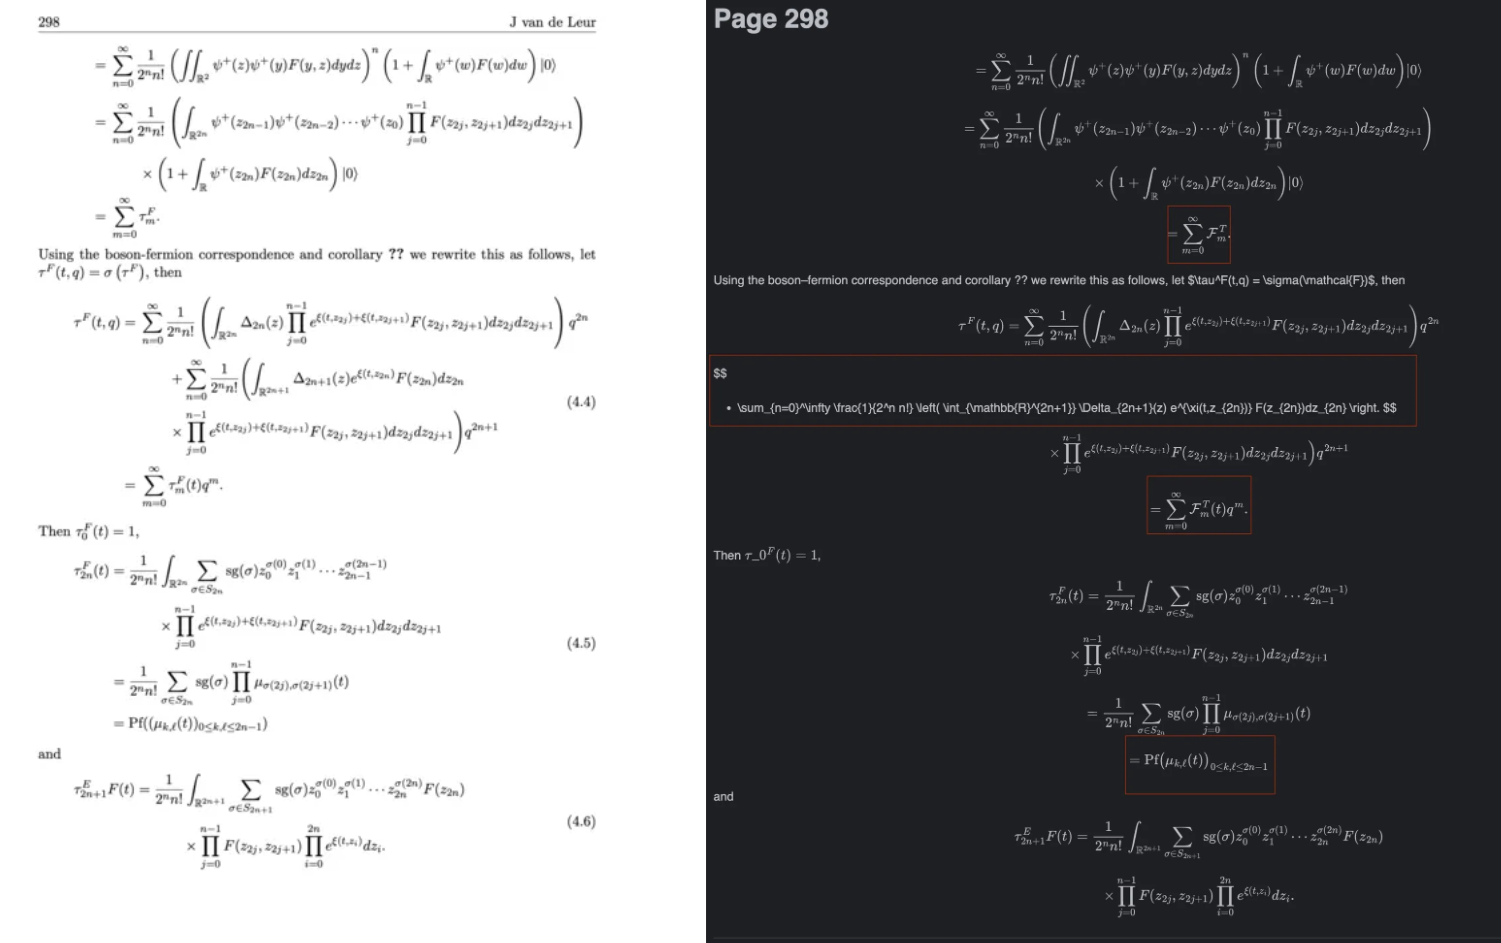 298 J van de Leur
= \sum_{n=0}^{\infty} \frac{1}{2^n n!} \left( \iint_{\mathbb{R}^2} \psi^+(z)\psi^+(y)F(y,z)dydz \right)^n \left( 1 + \int_{\mathbb{R}} \psi^+(w)F(w)dw \right) |0\rangle
= \sum_{n=0}^{\infty} \frac{1}{2^n n!} \left( \int_{\mathbb{R}^{2n}} \psi^+(z_{2n-1})\psi^+(z_{2n-2}) \cdots \psi^+(z_0) \prod_{j=0}^{n-1} F(z_{2j}, z_{2j+1})dz_{2j}dz_{2j+1} \right)
\times \left( 1 + \int_{\mathbb{R}} \psi^+(z_{2n})F(z_{2n})dz_{2n} \right) |0\rangle
= \sum_{m=0}^{\infty} \tau_m^F.
Using the boson-fermion correspondence and corollary ?? we rewrite this as follows, let
τ^F(t, q) = σ (τ^F), then
\tau^F(t,q) = \sum_{n=0}^{\infty} \frac{1}{2^n n!} \left( \int_{\mathbb{R}^{2n}} \Delta_{2n}(z) \prod_{j=0}^{n-1} e^{\xi(t,z_{2j})+\xi(t,z_{2j+1})} F(z_{2j}, z_{2j+1})dz_{2j}dz_{2j+1} \right) q^{2n}
+ \sum_{n=0}^{\infty} \frac{1}{2^n n!} \left( \int_{\mathbb{R}^{2n+1}} \Delta_{2n+1}(z) e^{\xi(t,z_{2n})} F(z_{2n})dz_{2n} \right.
(4.4)
\left. \times \prod_{j=0}^{n-1} e^{\xi(t,z_{2j})+\xi(t,z_{2j+1})} F(z_{2j}, z_{2j+1})dz_{2j}dz_{2j+1} \right) q^{2n+1}
= \sum_{m=0}^{\infty} \tau_m^F(t)q^m.
Then τ_0^F(t) = 1,
\tau_{2n}^F(t) = \frac{1}{2^n n!} \int_{\mathbb{R}^{2n}} \sum_{\sigma \in S_{2n}} sg(\sigma) z_0^{\sigma(0)} z_1^{\sigma(1)} \cdots z_{2n-1}^{\sigma(2n-1)}
\times \prod_{j=0}^{n-1} e^{\xi(t,z_{2j})+\xi(t,z_{2j+1})} F(z_{2j}, z_{2j+1})dz_{2j}dz_{2j+1}
(4.5)
= \frac{1}{2^n n!} \sum_{\sigma \in S_{2n}} sg(\sigma) \prod_{j=0}^{n-1} \mu_{\sigma(2j),\sigma(2j+1)}(t)
= Pf((\mu_{k,\ell}(t))_{0 \le k,\ell \le 2n-1})
and
\tau_{2n+1}^E F(t) = \frac{1}{2^n n!} \int_{\mathbb{R}^{2n+1}} \sum_{\sigma \in S_{2n+1}} sg(\sigma) z_0^{\sigma(0)} z_1^{\sigma(1)} \cdots z_{2n}^{\sigma(2n)} F(z_{2n})
(4.6)
\times \prod_{j=0}^{n-1} F(z_{2j}, z_{2j+1}) \prod_{i=0}^{2n} e^{\xi(t,z_i)} dz_i.
Page 298
= \sum_{n=0}^{\infty} \frac{1}{2^n n!} \left( \iint_{\mathbb{R}^2} \psi^+(z)\psi^+(y)F(y,z)dydz \right)^n \left( 1 + \int_{\mathbb{R}} \psi^+(w)F(w)dw \right) |0\rangle
= \sum_{n=0}^{\infty} \frac{1}{2^n n!} \left( \int_{\mathbb{R}^{2n}} \psi^+(z_{2n-1})\psi^+(z_{2n-2}) \cdots \psi^+(z_0) \prod_{j=0}^{n-1} F(z_{2j}, z_{2j+1})dz_{2j}dz_{2j+1} \right)
\times \left( 1 + \int_{\mathbb{R}} \psi^+(z_{2n})F(z_{2n})dz_{2n} \right) |0\rangle
= \sum_{m=0}^{\infty} \mathcal{F}_m^T.
Using the boson–fermion correspondence and corollary ?? we rewrite this as follows, let $\tau^F(t,q) = \sigma(\mathcal{F})$, then
\tau^F(t,q) = \sum_{n=0}^{\infty} \frac{1}{2^n n!} \left( \int_{\mathbb{R}^{2n}} \Delta_{2n}(z) \prod_{j=0}^{n-1} e^{\xi(t,z_{2j})+\xi(t,z_{2j+1})} F(z_{2j}, z_{2j+1})dz_{2j}dz_{2j+1} \right) q^{2n}
$$
• \sum_{n=0}^\infty \frac{1}{2^n n!} \left( \int_{\mathbb{R}^{2n+1}} \Delta_{2n+1}(z) e^{\xi(t,z_{2n})} F(z_{2n})dz_{2n} \right. $$
\times \prod_{j=0}^{n-1} e^{\xi(t,z_{2j})+\xi(t,z_{2j+1})} F(z_{2j}, z_{2j+1})dz_{2j}dz_{2j+1} \right) q^{2n+1}
= \sum_{m=0}^{\infty} \mathcal{F}_m^T(t)q^m.
Then τ_0^F(t) = 1,
\tau_{2n}^F(t) = \frac{1}{2^n n!} \int_{\mathbb{R}^{2n}} \sum_{\sigma \in S_{2n}} sg(\sigma) z_0^{\sigma(0)} z_1^{\sigma(1)} \cdots z_{2n-1}^{\sigma(2n-1)}
\times \prod_{j=0}^{n-1} e^{\xi(t,z_{2j})+\xi(t,z_{2j+1})} F(z_{2j}, z_{2j+1})dz_{2j}dz_{2j+1}
= \frac{1}{2^n n!} \sum_{\sigma \in S_{2n}} sg(\sigma) \prod_{j=0}^{n-1} \mu_{\sigma(2j),\sigma(2j+1)}(t)
= Pf(\mu_{k,\ell}(t))_{0 \le k,\ell \le 2n-1}
and
\tau_{2n+1}^E F(t) = \frac{1}{2^n n!} \int_{\mathbb{R}^{2n+1}} \sum_{\sigma \in S_{2n+1}} sg(\sigma) z_0^{\sigma(0)} z_1^{\sigma(1)} \cdots z_{2n}^{\sigma(2n)} F(z_{2n})
\times \prod_{j=0}^{n-1} F(z_{2j}, z_{2j+1}) \prod_{i=0}^{2n} e^{\xi(t,z_i)} dz_i.